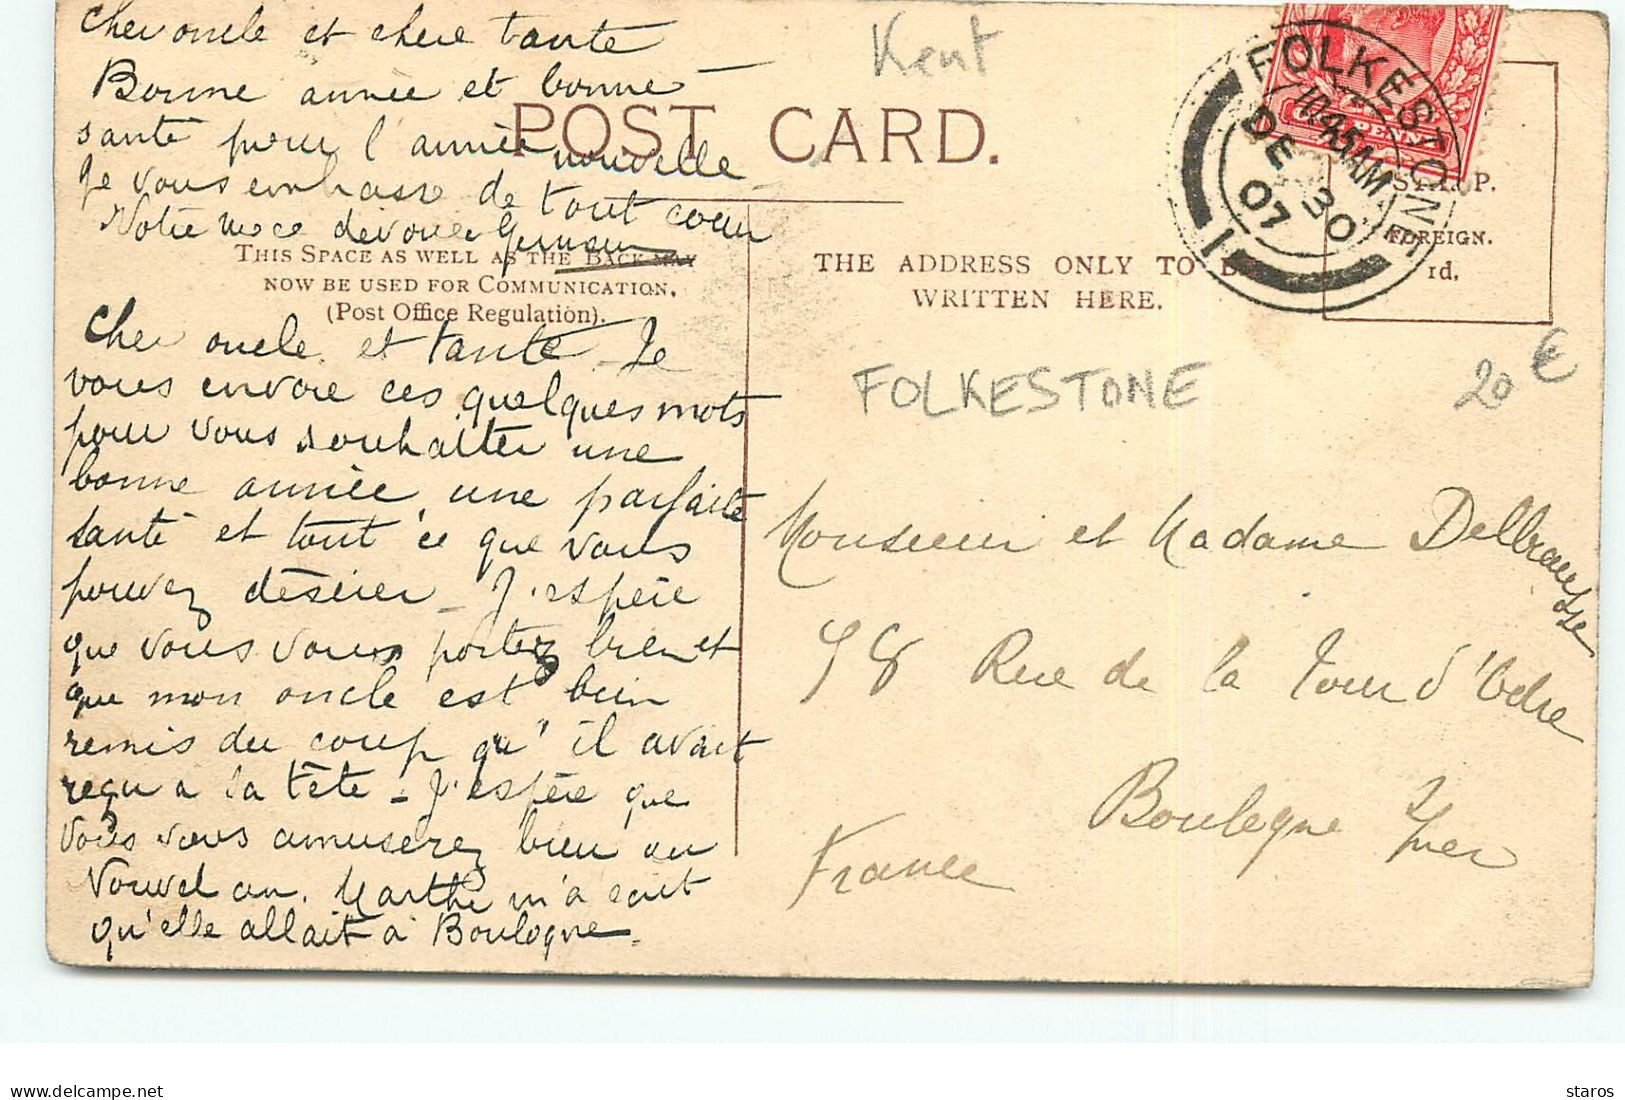 Cher oncle et chère tante
Bonne année et bonne
santé pour l'année nouvelle
Je vous embrasse de tout cœur
Votre nièce dévouée
Kent
POST CARD.
FOLKESTONE
10.45 AM
DE 30
07
1
PENNY
P.
FOREIGN.
1d.
THIS SPACE AS WELL AS THE BACK MAY
NOW BE USED FOR COMMUNICATION.
(Post Office Regulation).
THE ADDRESS ONLY TO BE
WRITTEN HERE.
Cher oncle et tante - Je
vous envoie ces quelques mots
pour vous souhaiter une
bonne année, une parfaite
santé et tout ce que vous
pouvez désirer - J'espère
que vous vous portez bien et
que mon oncle est bien
remis du coup qu'il avait
reçu a la tête - J'espère que
vous vous amuserez bien au
Nouvel an. Marthe m'a écrit
qu'elle allait à Boulogne.
FOLKESTONE
20 €
Monsieur et Madame Delbrausse
98 Rue de la Tour d'Odre
Boulogne s/mer
France
staros